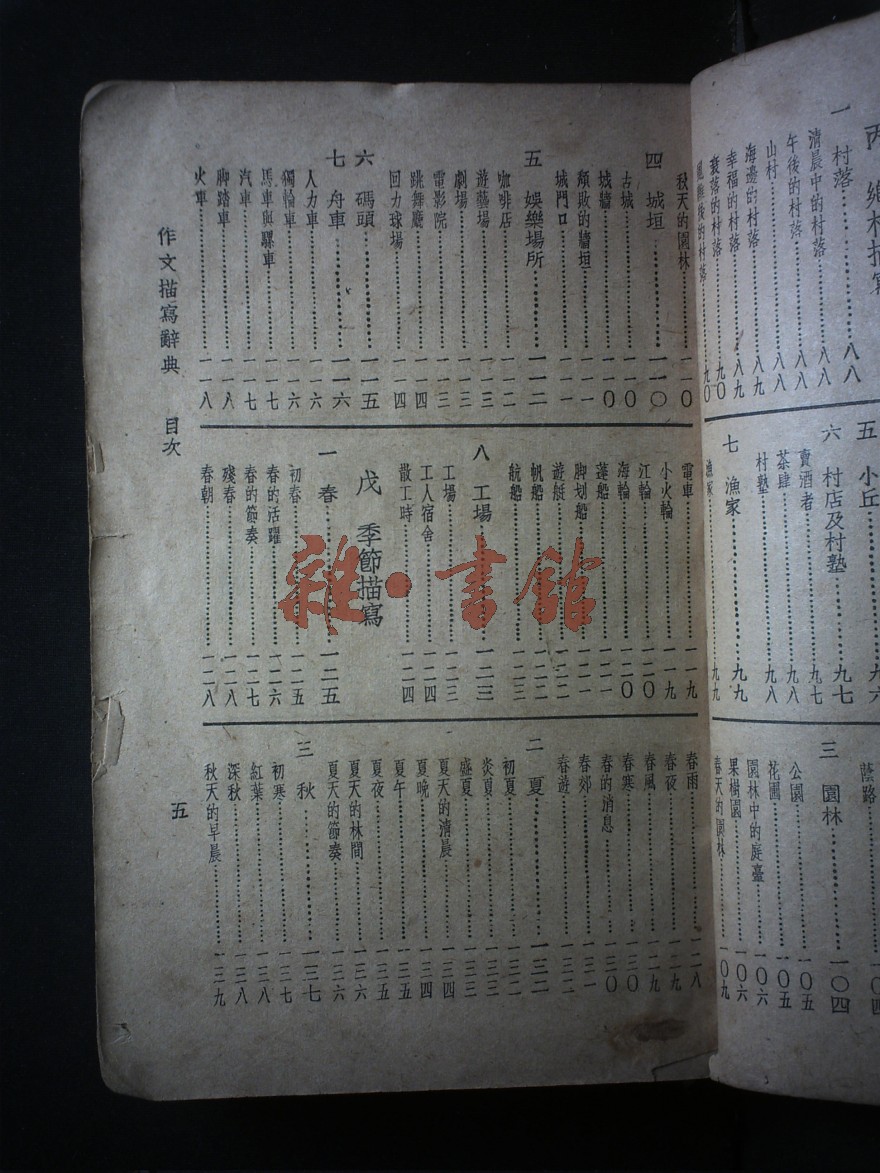 鄉村描寫
一 村落………八八
清晨中的村落………八八
午後的村落………八八
山村………八八
海邊的村落………八九
幸福的村落………八九
衰落的村落………九〇
後的村落………九〇
五 小丘………九六
六 村店及村塾………九七
賣酒者………九七
茶肆………九八
村塾………九八
七 漁家………九九
漁家………九九
蔭路………一〇四
三 園林………一〇四
公園………一〇五
花圃………一〇五
園林中的庭臺………一〇六
果樹園………一〇六
春天的園林………一〇九
秋天的園林………一一〇
四 城垣………一一〇
古城………一一〇
城牆………一一〇
頹敗的牆垣………一一一
城門口………一一一
五 娛樂場所………一一二
咖啡店………一一二
遊藝場………一一三
劇場………一一三
電影院………一一四
跳舞廳………一一四
回力球場………一一四
六 碼頭………一一五
七 舟車………一一六
人力車………一一六
獨輪車………一一六
馬車與騾車………一一七
汽車………一一七
脚踏車………一一八
火車………一一八
電車………一一九
小火輪………一一九
江輪………一二〇
海輪………一二〇
蓬船………一二一
脚划船………一二一
遊艇………一二二
帆船………一二二
航船………一二三
八 工場………一二三
工場………一二三
工人宿舍………一二四
散工時………一二四
戊 季節描寫
一 春………一二五
初春………一二五
春的活躍………一二六
春的節奏………一二七
殘春………一二八
春朝………一二八
春雨………一二八
春夜………一二九
春風………一二九
春寒………一三〇
春的消息………一三〇
春郊………一三一
春遊………一三二
二 夏………一三二
初夏………一三二
炎夏………一三三
盛夏………一三三
夏天的清晨………一三四
夏晚………一三四
夏午………一三五
夏夜………一三五
夏天的林間………一三六
夏天的節奏………一三六
三 秋………一三七
初寒………一三七
紅葉………一三八
深秋………一三八
秋天的早晨………一三九
作文描寫辭典 目次
五
雜·書館